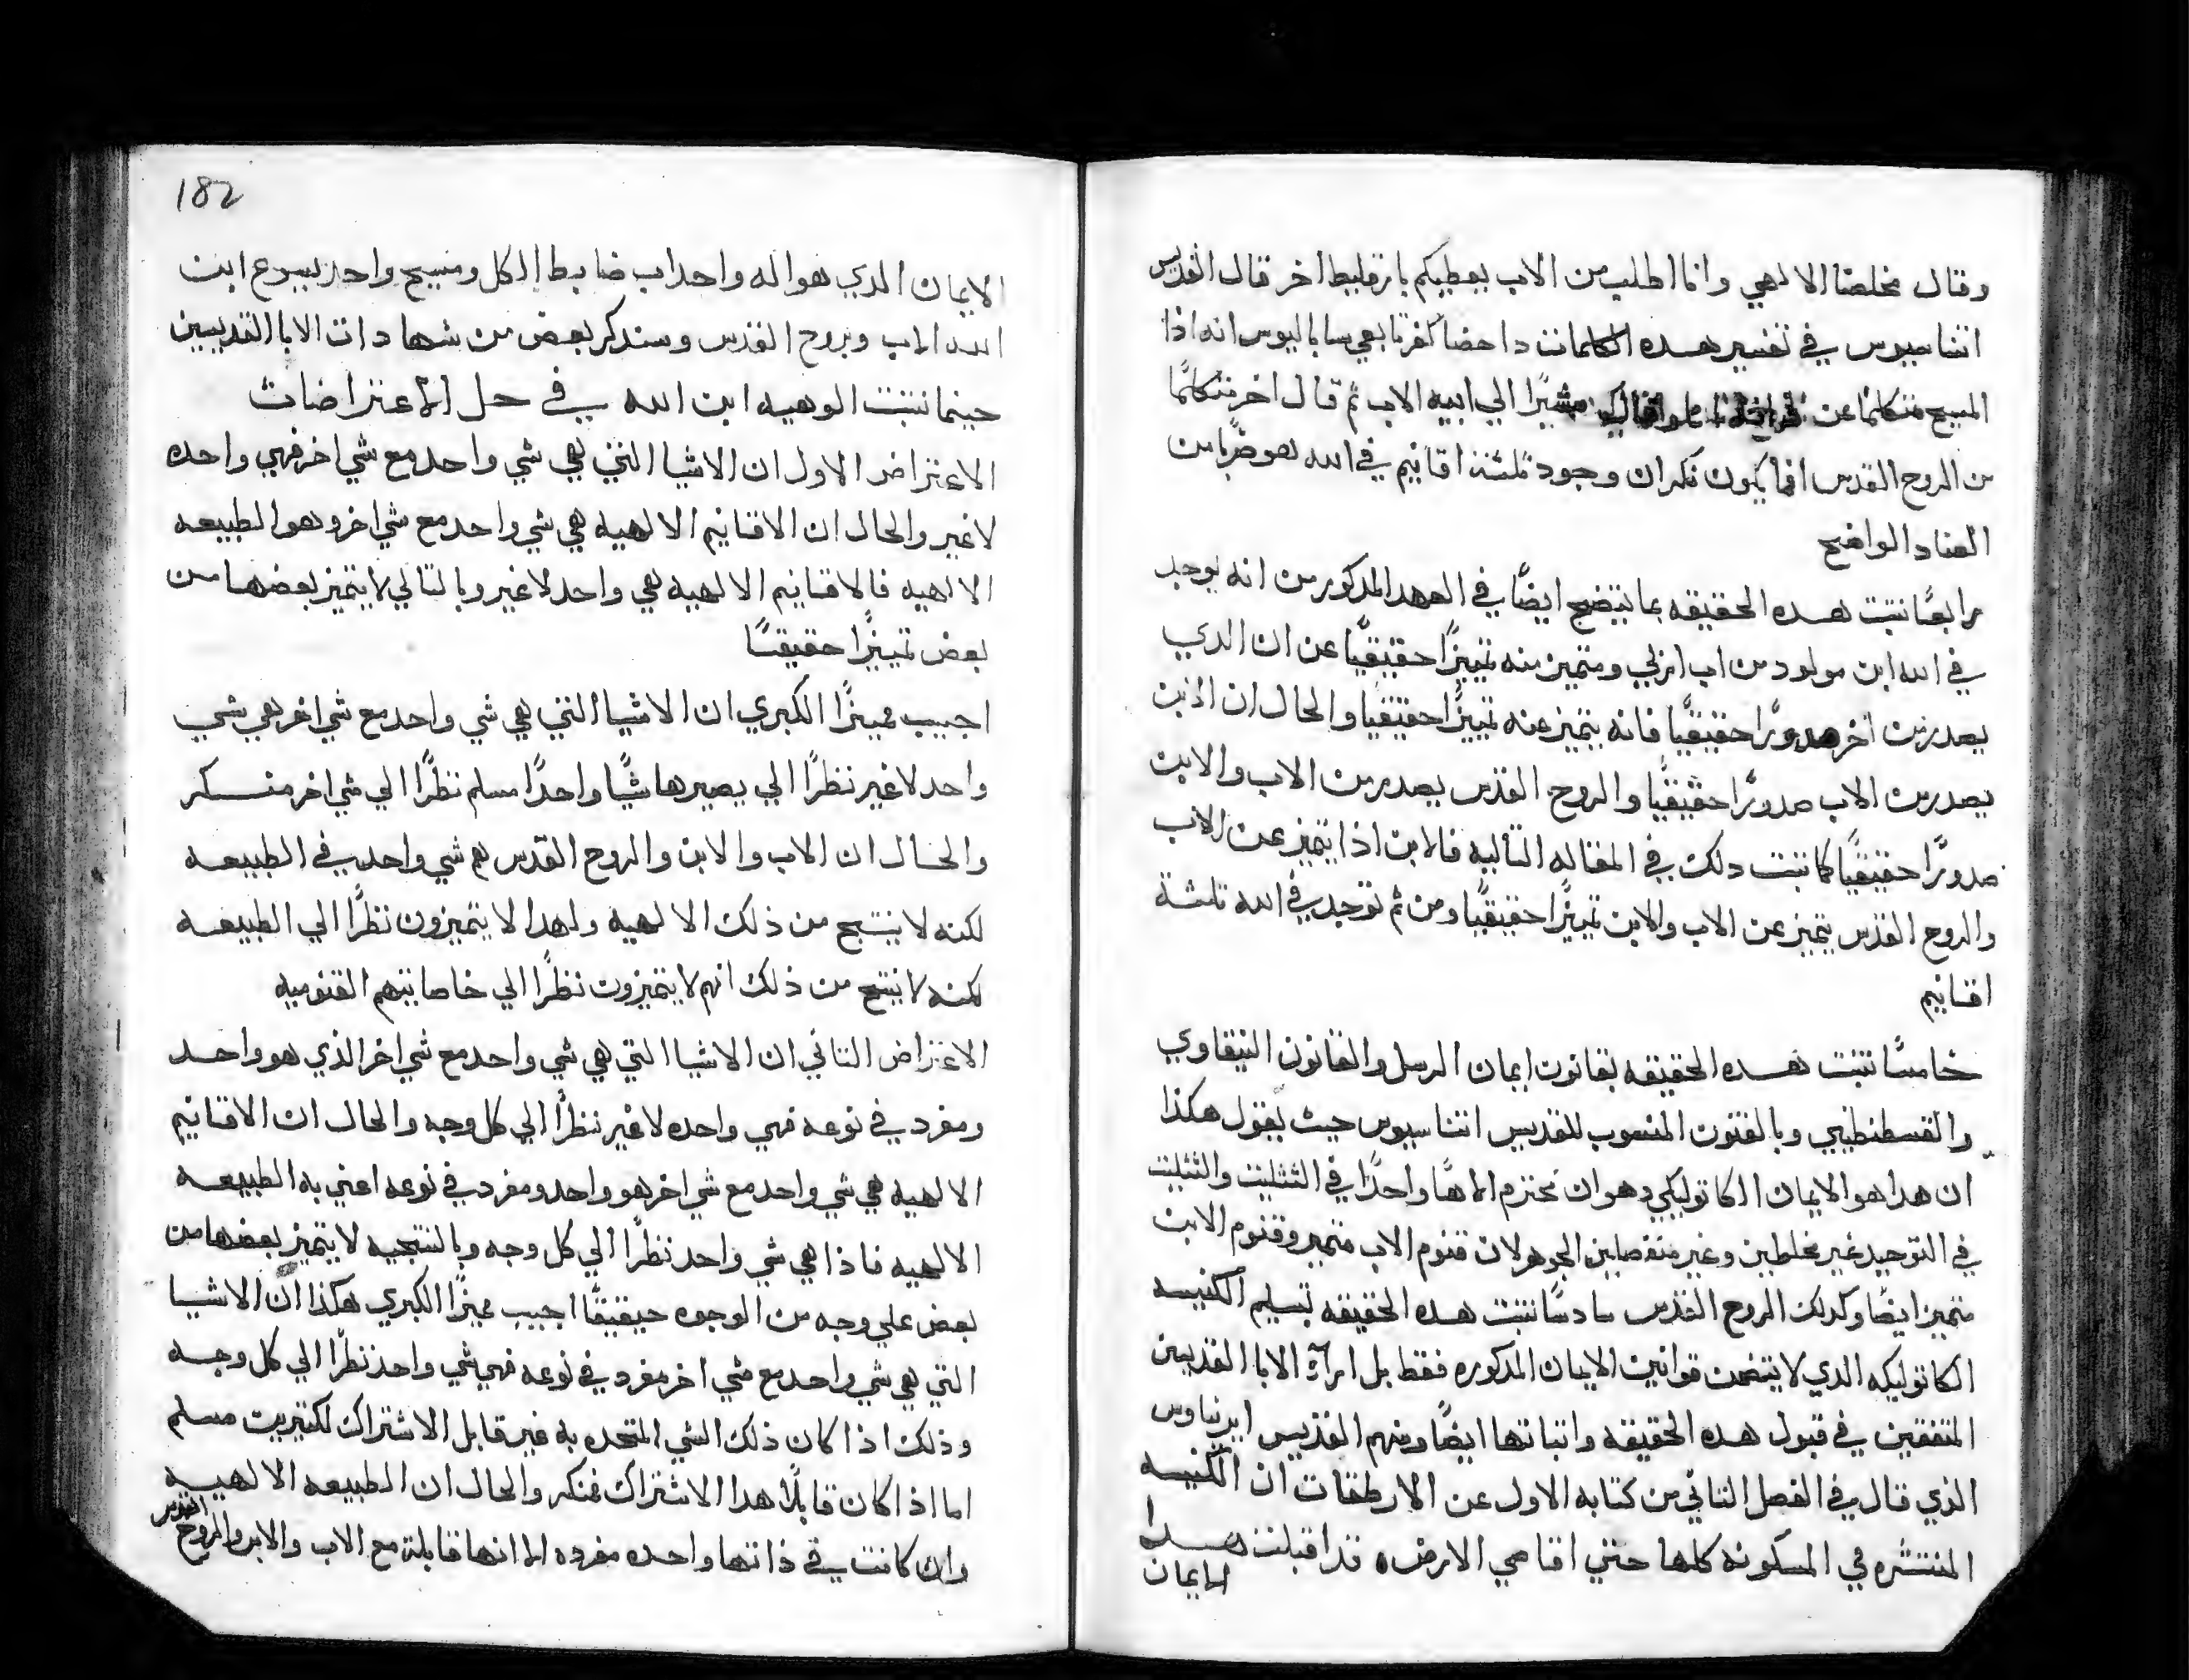 وقال مخلصنا الالهي وانا اطلب من الاب يعطيكم بارقليط اخر قال القديس
اتناسيوس في تفسير هده الكلمات داحضا كفر تابعي ساباليوس انه اذا
المسيح متكلما عن مشيرًا الي ابيه الاب ثم قال اخر متكلمًا
من الروح القدس افما يكون نكران وجود تلتة اقانيم في الله هو ضربًا من
العناد الواضح
رابعًا نتبت هده الحقيقه بما يتضح ايضًا في العهد المدكور من انه يوجد
في الله ابن مولود من اب ازلي ومتميز منه تمييزًا حقيقيًا عن ان الدي
يصدر من اخر صدورًا حقيقيًا فانه يتميز عنه تمييزًا حقيقيا والحال ان الابن
يصدر من الاب صدورًا حقيقيًا والروح القدس يصدر من الاب والابن
صدورًا حقيقيًا كما نتبت دلك في المقاله التاليه فالابن اذا يتميز عن الاب
والروح القدس يتميز عن الاب والابن تمييزًا حقيقيًا ومن ثم توجد في الله تلتة
اقانيم
خامسًا نتبت هده الحقيقه بقانون ايمان الرسل والقانون النيقاوي
والقسطنطيني وبالقنون المنسوب للقديس اتناسيوس حيث يقول هكذا
ان هدا هو الايمان الكاتوليكي وهو ان نحترم الاهًا واحدًا في التتليت والتتليت
في التوحيد غير مخلطين وغير منفصلين الجوهر لان قنوم الاب متميز وقنوم الابن
متميز ايضًا وكدلك الروح القدس سادسًا نتبت هده الحقيقه بتسليم الكنيسه
الكاتوليكه الدي لا يتضمن قوانين الايمان المدكوره فقط بل اراة الابا القديسين
المتفقين في قبول هده الحقيقه واتباتها ايضًا ومنهم القديس ايريناوس
الذي قال في الفصل التاني من كتابه الاول عن الارطقات ان الكنيسه
المنتشره في المسكونه كلها حتي اقاصي الارض قد اقبلت هدا
الايمان
182
الايمان الدي هو اله واحد اب ضابط الكل ومسيح واحد يسوع ابن
الله الاب وبروح القدس وسندكر بعض من شهادات الابا القديسين
حينما نتبت الوهيه ابن الله في حل الاعتراضات
الاعتراض الاول ان الاشيا التي هي شي واحد مع شي اخر فهي واحده
لا غير والحال ان الاقانيم الالهيه هي شي واحد مع شي اخر وهو الطبيعه
الالهيه فالاقانيم الالهيه هي واحد لا غير وبالتالي لا يتميز بعضها من
بعض تمييزًا حقيقيًا
اجيب مميزًا الكبري ان الاشيا التي هي شي واحد مع شي اخر هي شي
واحد لا غير نظرًا الي يصيرها شيًا واحدًا مسلم نظرًا الي شي اخر منكر
والحال ان الاب والابن والروح القدس هم شي واحد في الطبيعه
لكنه لا ينتج من ذلك الالهيه ولهدا لا يتميزون نظرًا الي الطبيعه
لكنه لا ينتج من ذلك انهم لا يتميزون نظرًا الي خاصاتيهم القنوميه
الاعتراض التاني ان الاشيا التي هي شي واحد مع شي اخر الذي هو واحد
ومفرد في نوعه فهي واحده لا غير نظرًا الي كل وجه والحال ان الاقانيم
الالهيه هي شي واحد مع شي اخر هو واحد ومفرد في نوعه اعني به الطبيعه
الالهيه فاذا هي شي واحد نظرًا الي كل وجه وبالنتيجيه لا يتميز بعضها من
بعض علي وجه من الوجوه حيقيقًا اجيب مميزًا الكبري هكذا ان الاشيا
التي هي شي واحد مع شي اخر مفرد في نوعه فهي شي واحد نظرًا الي كل وجه
وذلك اذا كان ذلك الشي المتحده به غير قابل الاشتراك لكتيرين مسلم
اما اذا كان قابلًا هدا الاشتراك فمنكر والحال ان الطبيعه الالهيه
وان كانت في ذاتها واحده مفرده الا انها قابلة مع الاب والابن والروح القدس